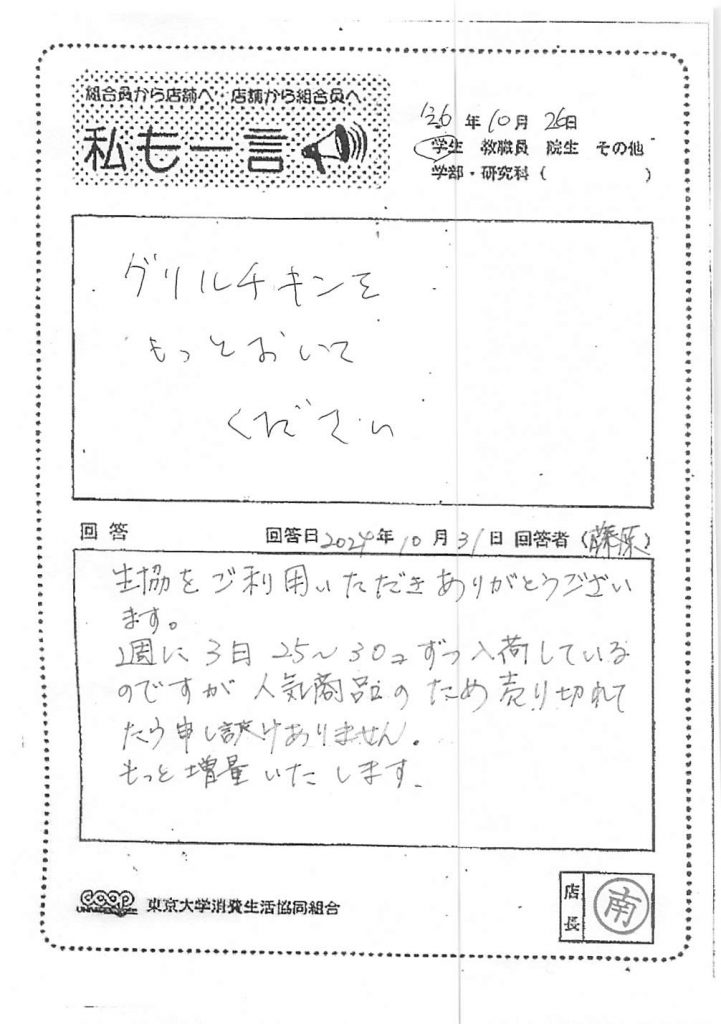 組合員から店舗へ 店舗から組合員へ
私も一言
年10月26日
学生 教職員 院生 その他
学部・研究科( )
グリルチキンを
もっとおいて
ください
回答 回答日2024年10月31日 回答者(藤原)
生協をご利用いただきありがとうござい
ます。
1週に3日25~30コずつ入荷している
のですが人気商品のため売り切れて
たら申し訳けありません。
もっと増量いたします。
coop
東京大学消費生活協同組合
店長 南